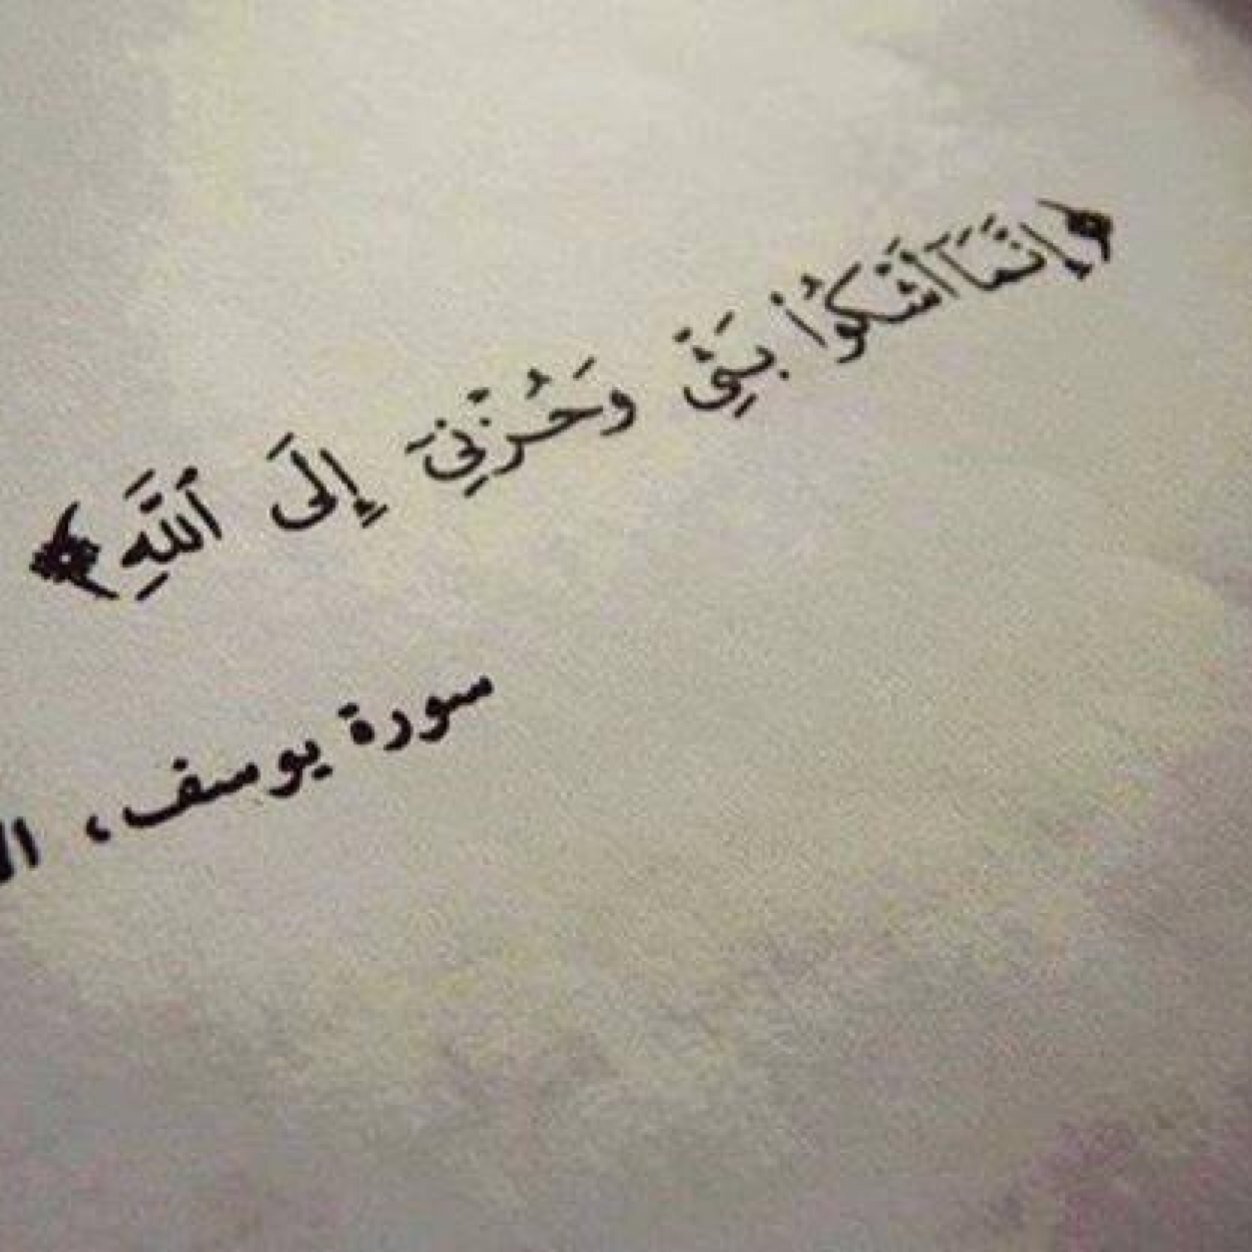 ﴿إِنَّمَآ أَشْكُوا۟ بَثِّى وَحُزْنِىٓ إِلَى ٱللَّهِ﴾
سورة يوسف،